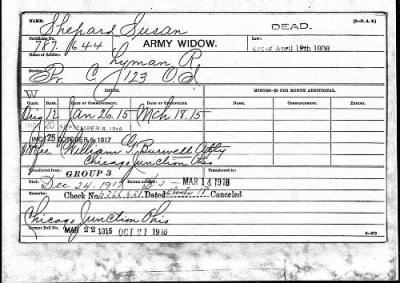 NAME: (3-P. A. S.)
Shepard Susan DEAD.
Certificate No. Law:
787.644 ARMY WIDOW. Act of April 19th 1908
Name of Soldier:
Lyman R
Service:
Pr. C 123 O I
ISSUE. MINORS—$2 PER MONTH ADDITIONAL.
CLASS. RATE. DATE OF COMMENCEMENT. DATE OF CERTIFICATE. DATE OF COMMENCEMENT.
W
Aug 12 Jan 26.15 Mch 18.15
20 SEPTEMBER 8, 1916
ING 25 OCTOBER 6, 1917
William G. Burwell Atty
Chicago Junction Ohio
Transferred from Transferred to:
GROUP 3
Died: Dec 24-191 MAR 14 1918
Remarks: Check No. Dated Canceled.
Chicago Junction Ohio
Former Roll No. MAR 22 1315 OCT 21 1918